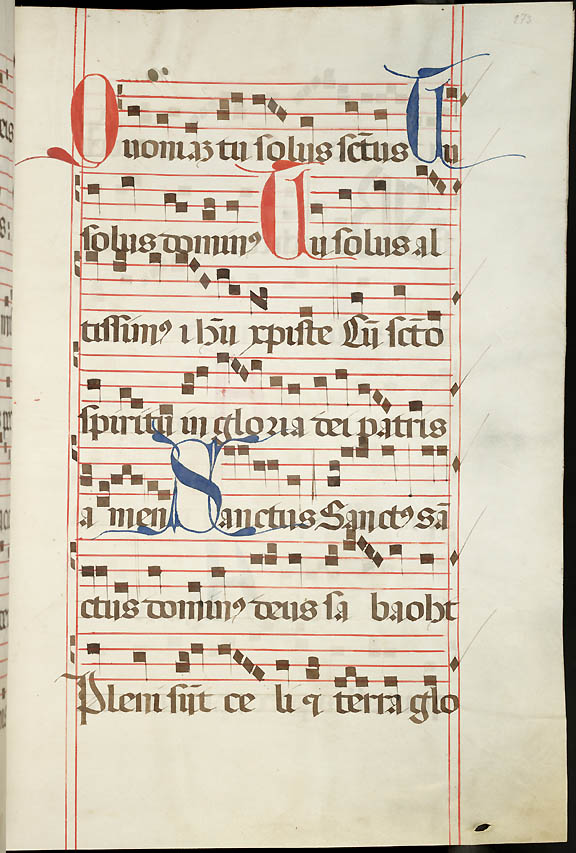 Quoniaz tu solus sctus Tu
solus dominꝰ Tu solus al
tissimꝰ ihu xpiste Cu scto
spiritu in gloria dei patris
a men Sanctus Sanctꝰ sā
ctus dominꝰ deus sa baoht
Pleni sūt ce li ⁊ terra glo